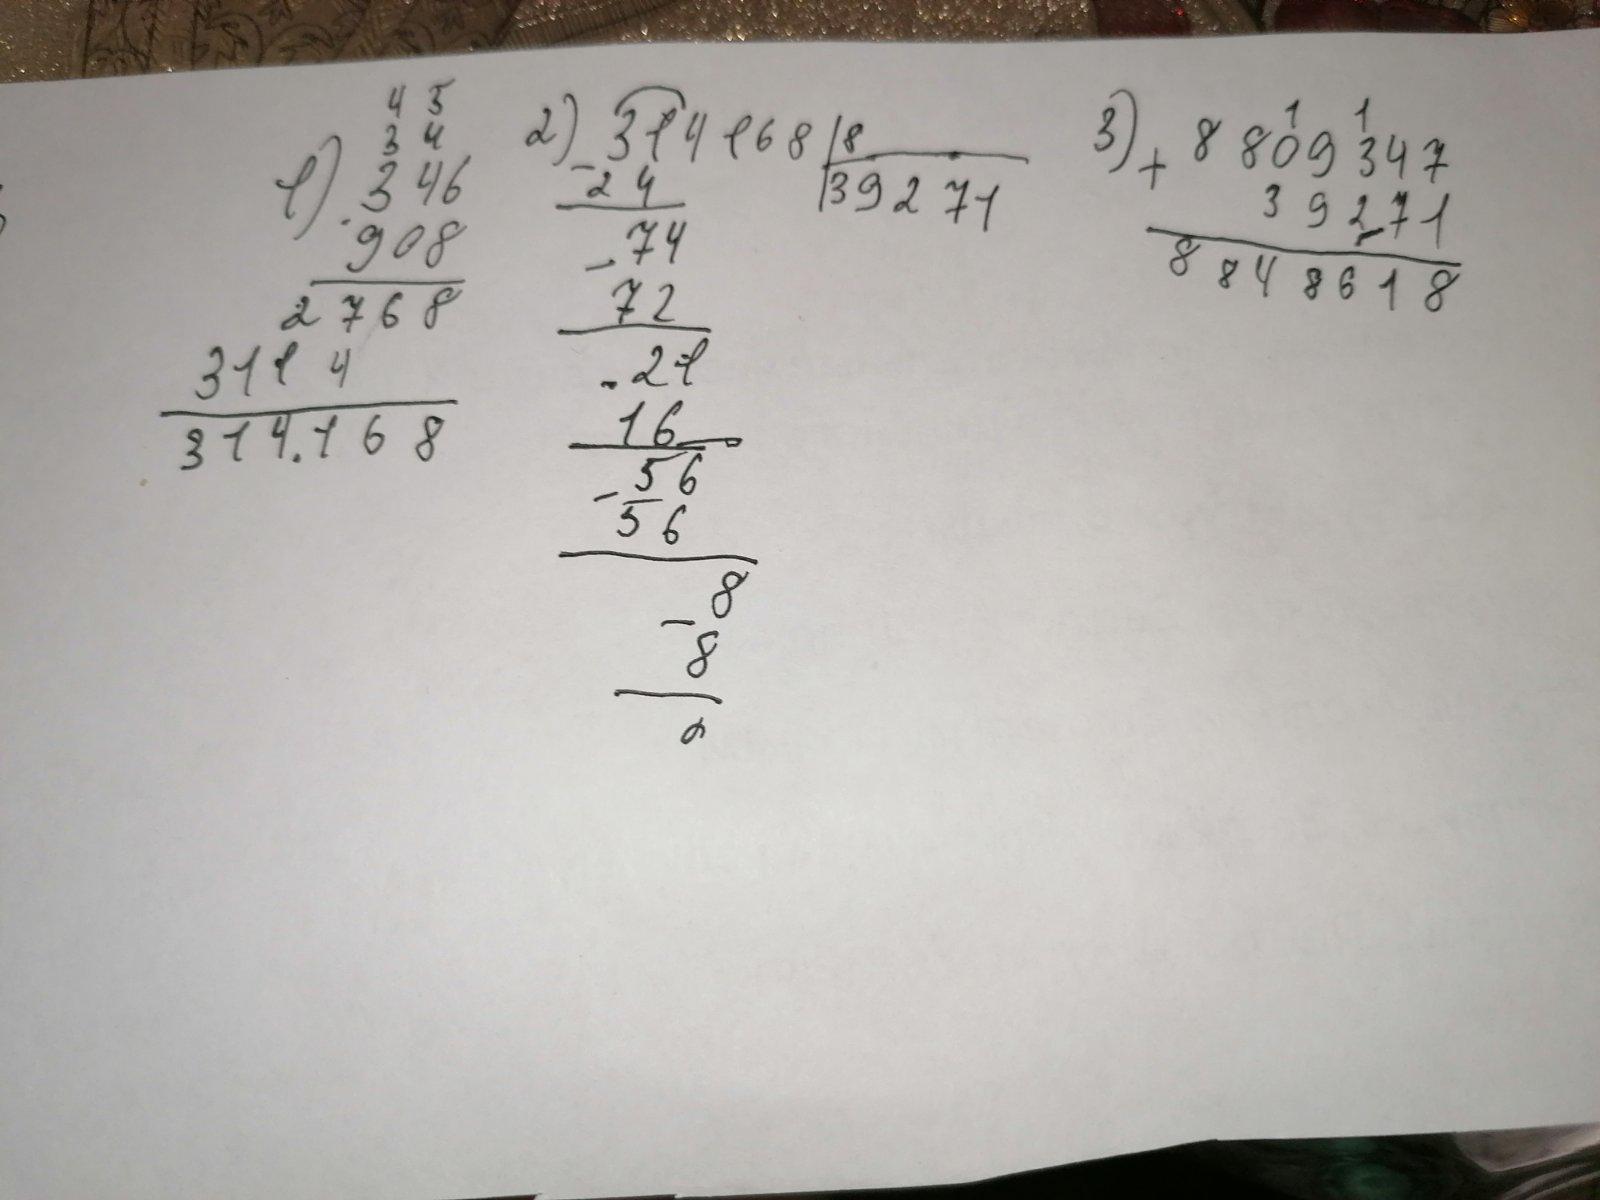 4 5
3 4
1) 346
· 908
2768
3114
314.168
2) 314168 | 8
- 24 | 39271
74
- 72
- 21
16
- 56
56
8
- 8
0
3) 1 1
+ 8809347
39271
8848618